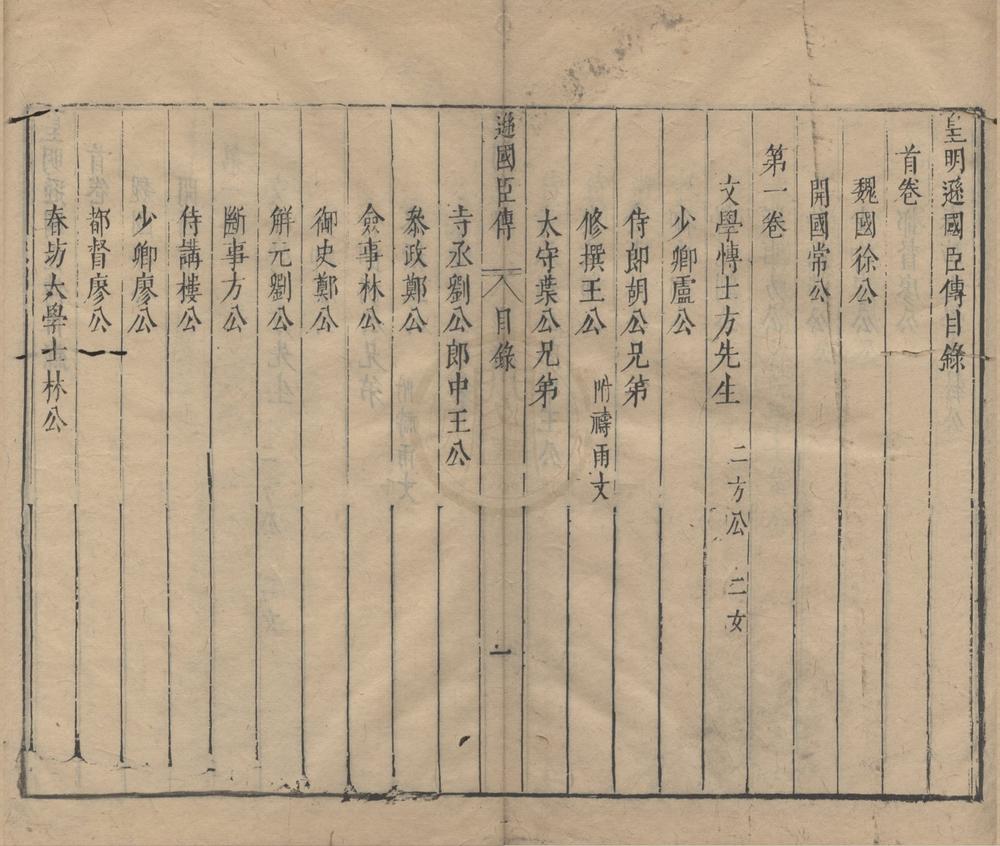 皇明遜國臣傳目錄
首卷
魏國徐公
開國常公
第一卷
文學博士方先生 二方公 二女
少卿盧公
侍郎胡公兄弟
修撰王公 附禱雨文
太守葉公兄弟
遜國臣傳 目錄 一
寺丞劉公郎中王公
叅政鄭公
僉事林公
御史鄭公
解元劉公
斷事方公
侍講樓公
少卿廖公
都督廖公
春坊大學士林公